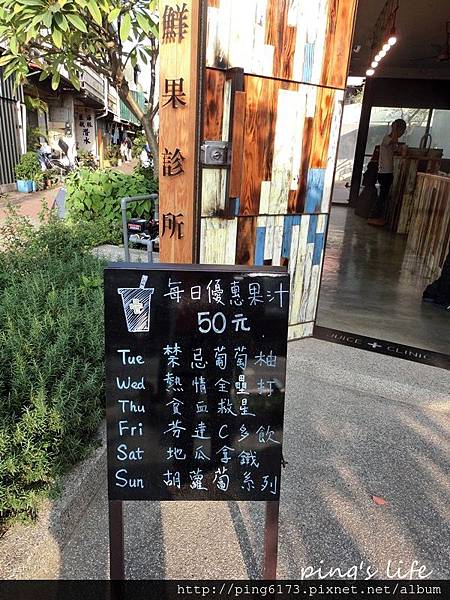 鮮果診所
每日優惠果汁
50元
Tue 禁忌葡萄柚
Wed 熱情全壘打
Thu 貧血救星
Fri 芬達C多飲
Sat 地瓜拿鐵
Sun 胡蘿蔔系列
JUICE CLINIC
ping's life
http://ping6173.pixnet.net/album